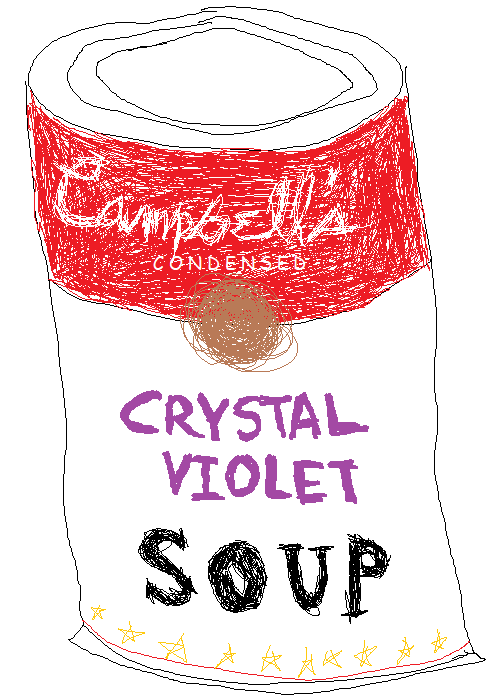 Campbell's
CONDENSED
CRYSTAL
VIOLET
SOUP